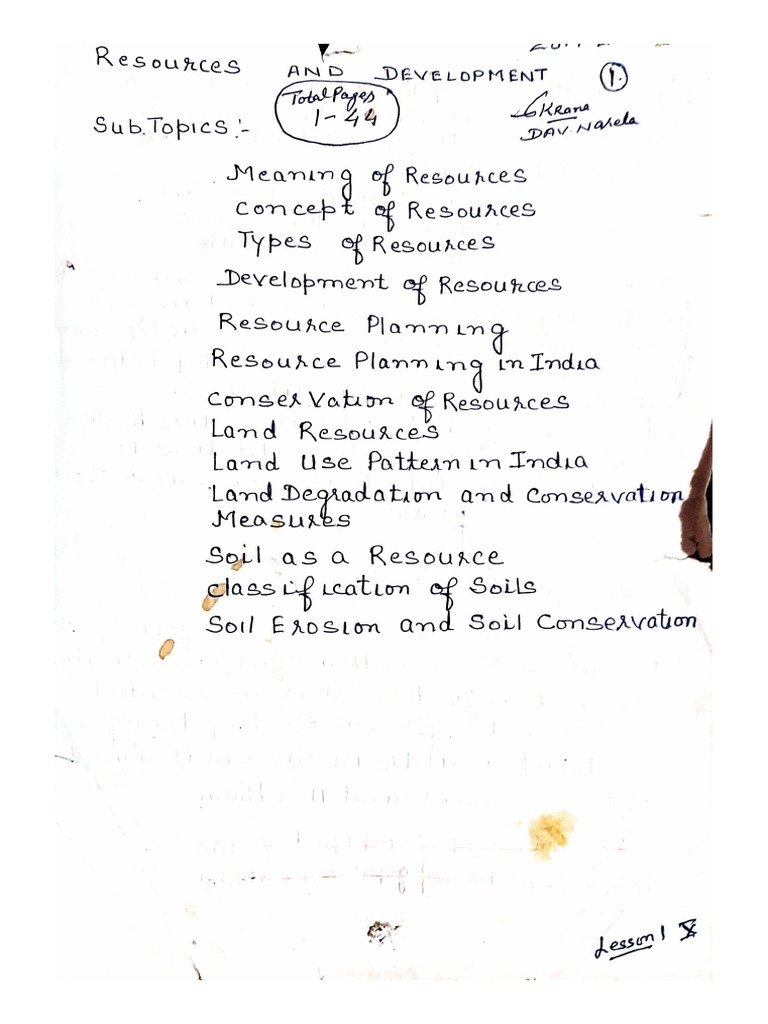 Resources AND DEVELOPMENT 1.
Total Pages
1-44
KRana
DAV. Narela
Sub.Topics:-
Meaning of Resources
Concept of Resources
Types of Resources
Development of Resources
Resource Planning
Resource Planning in India
Conservation of Resources
Land Resources
Land Use Pattern in India
Land Degradation and Conservation
Measures
Soil as a Resource
classification of Soils
Soil Erosion and Soil Conservation
Lesson 1 X